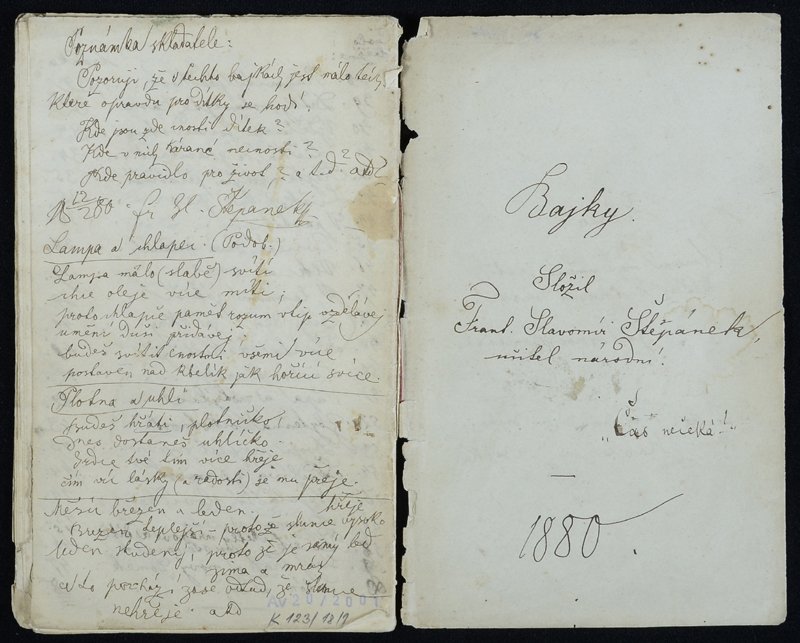 Poznámka skladatele:
Pozoruji, že v těchto bajkách jest málo těch,
které opravdu pro dítky se hodí!
Kde jsou zde cnosti dítek?
Kde v nich kárané necnosti?
Kde pravidlo pro život? a t.d.? atd?
12/2 80 Fr. Sl. Štěpánek
Lampa a chlapec. (Podob.)
Lampa málo (slabě) svítí
chce oleje více míti;
proto chlapče paměť rozum vtip vzdělávej
umění duši přidávej,
budeš svítit cnostmi všemi více
postaven nad kbelík jak hořící svíce.
Plotna a uhlí
Budeš hřáti, plotničko!
Dnes dostaneš uhlíčko.
Srdce tvé tím více hřeje
čím víc lásky (a radosti) se mu přeje.
Měsíc březen a leden.
hřeje
Březen teplejší – protože slunce vysoko
leden studený, proto že je samý led
zima a mráz
a to pochází zase odtud, že slunce
nehřeje atd
AV20/2001
K 123/18/9
Bajky.
Složil
Frant. Slavomír Štěpánek,
učitel národní.
„Čas nečeká!"
1880.